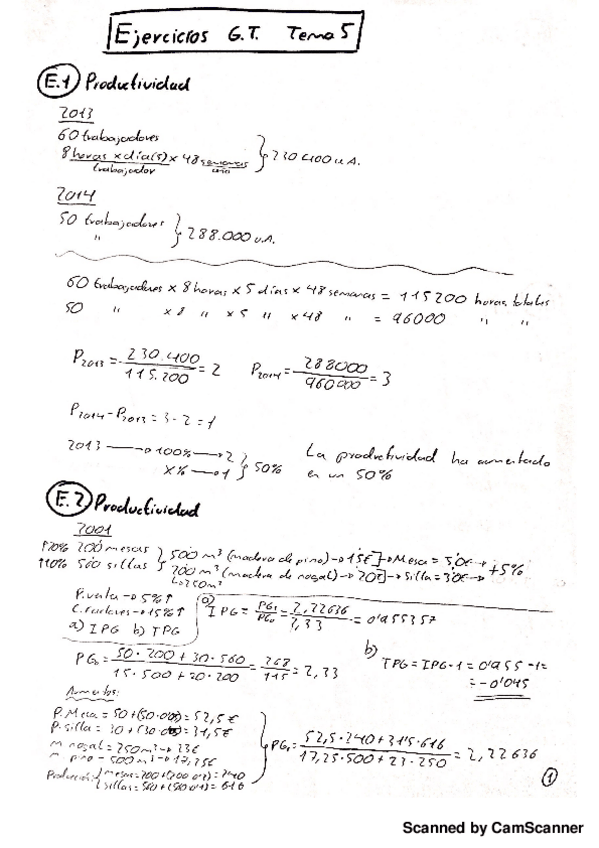 Ejercicios G.T. Tema 5
E.1 Productividad
2013
60 trabajadores
8 horas x día(5) x 48 semanas } 230400 u.A.
trabajador año
2014
50 trabajadores } 288.000 u.A.
"
60 trabajadores x 8 horas x 5 días x 48 semanas = 115200 horas totales
50 " x 8 " x 5 " x 48 " = 96000 " "
P2013 = 230.400 / 115.200 = 2 P2014 = 288000 / 960000 = 3
P2014 - P2013 = 3 - 2 = 1
2013 → 100% → 2 } 50% La productividad ha aumentado
x% → 1 en un 50%
E.2 Productividad
2001
200 mesas } 500 m³ (madera de pino) → 15€ → Mesa = 50€ → +5%
↑10% 560 sillas 200 m³ (madera de nogal) → 20€ → Silla = 30€ →
→ 250m³
P. venta → 5% ↑
C. factores → 15% ↑
a) IPG b) TPG
a) IPG = PG1 / PG0 = 2,22636 / 2,33 = 0'955357
PG0 = 50 · 200 + 30 · 560 / 15 · 500 + 20 · 200 = 268 / 115 = 2,33
b) TPG = IPG - 1 = 0'955 - 1 =
= -0'045
Aumentos:
P. Mesa = 50 + (50 · 0'05) = 52,5€
P. silla = 30 + (30 · 0'05) = 31,5€
m nogal = 250m³ → 23€
m pino = 500m³ → 17,25€
Producción { mesas = 200 + (200 · 0'2) = 240
sillas = 560 + (560 · 0'1) = 616
PG1 = 52,5 · 240 + 31'5 · 616 / 17,25 · 500 + 23 · 250 = 2,22636
1
Scanned by CamScanner